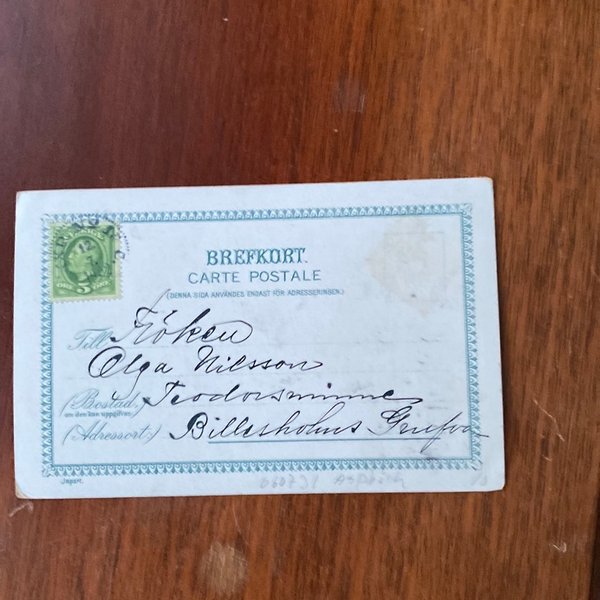 BREFKORT.
CARTE POSTALE
(DENNA SIDA ANVÄNDES ENDAST FÖR ADRESSERINGEN.)
Till Fröken
Olga Nilsson
(Bostad, Teodorsminne
om den kan uppgifvas)
(Adressort:) Billesholms Grufva
5
Japart.
060731